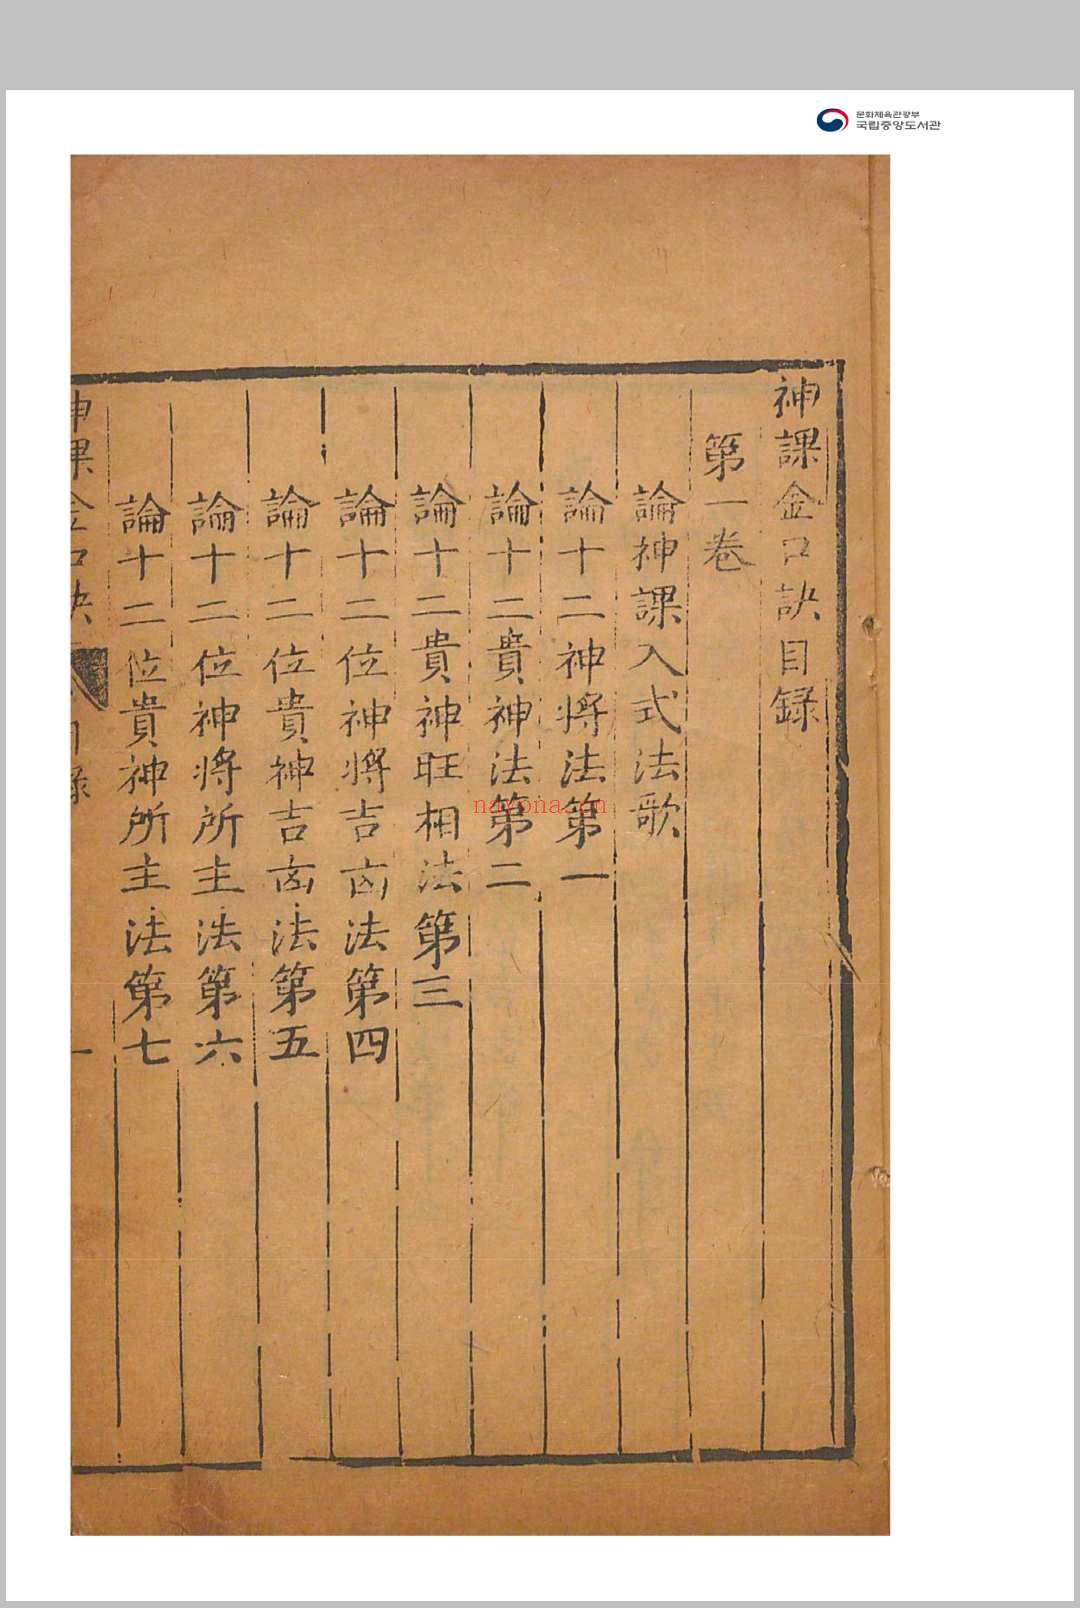 문화체육관광부
국립중앙도서관
神課金口訣目録
第一卷
論神課入式法歌
論十二神將法第一
論十二貴神法第二
論十二貴神旺相法第三
論十二位神將吉凶法第四
論十二位貴神吉凶法第五
論十二位神將所主法第六
論十二位貴神所主法第七
神課金口訣 目録 一